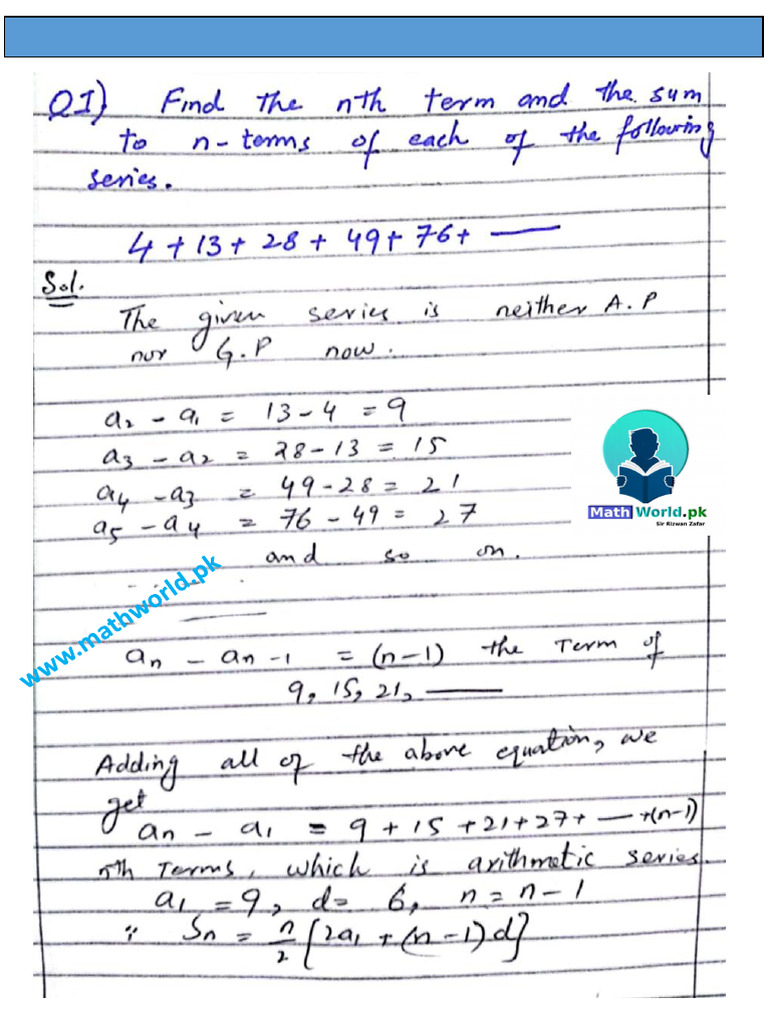 Q1) Find the nth term and the sum
to n-terms of each of the following
series.
4 + 13 + 28 + 49 + 76 + ——
Sol.
The given series is neither A.P
nor G.P now.
a₂ - a₁ = 13 - 4 = 9
a₃ - a₂ = 28 - 13 = 15
a₄ - a₃ = 49 - 28 = 21
a₅ - a₄ = 76 - 49 = 27
and so on.
Math World.pk
Sir Rizwan Zafar
www.mathworld.pk
aₙ - aₙ₋₁ = (n-1) the Term of
9, 15, 21, ——
Adding all of the above equation, we
get
aₙ - a₁ = 9 + 15 + 21 + 27 + — + (n-1)
nth Terms, which is arithmetic series.
a₁ = 9, d = 6, n = n - 1
∵ Sₙ = n/2 [2a₁ + (n-1)d]